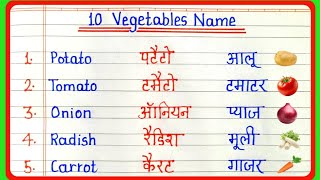 10 Vegetables Name
1. Potato पटैटो आलू
2. Tomato टमैटो टमाटर
3. Onion ऑनियन प्याज
4. Radish रैडिश मूली
5. Carrot कैरट गाजर